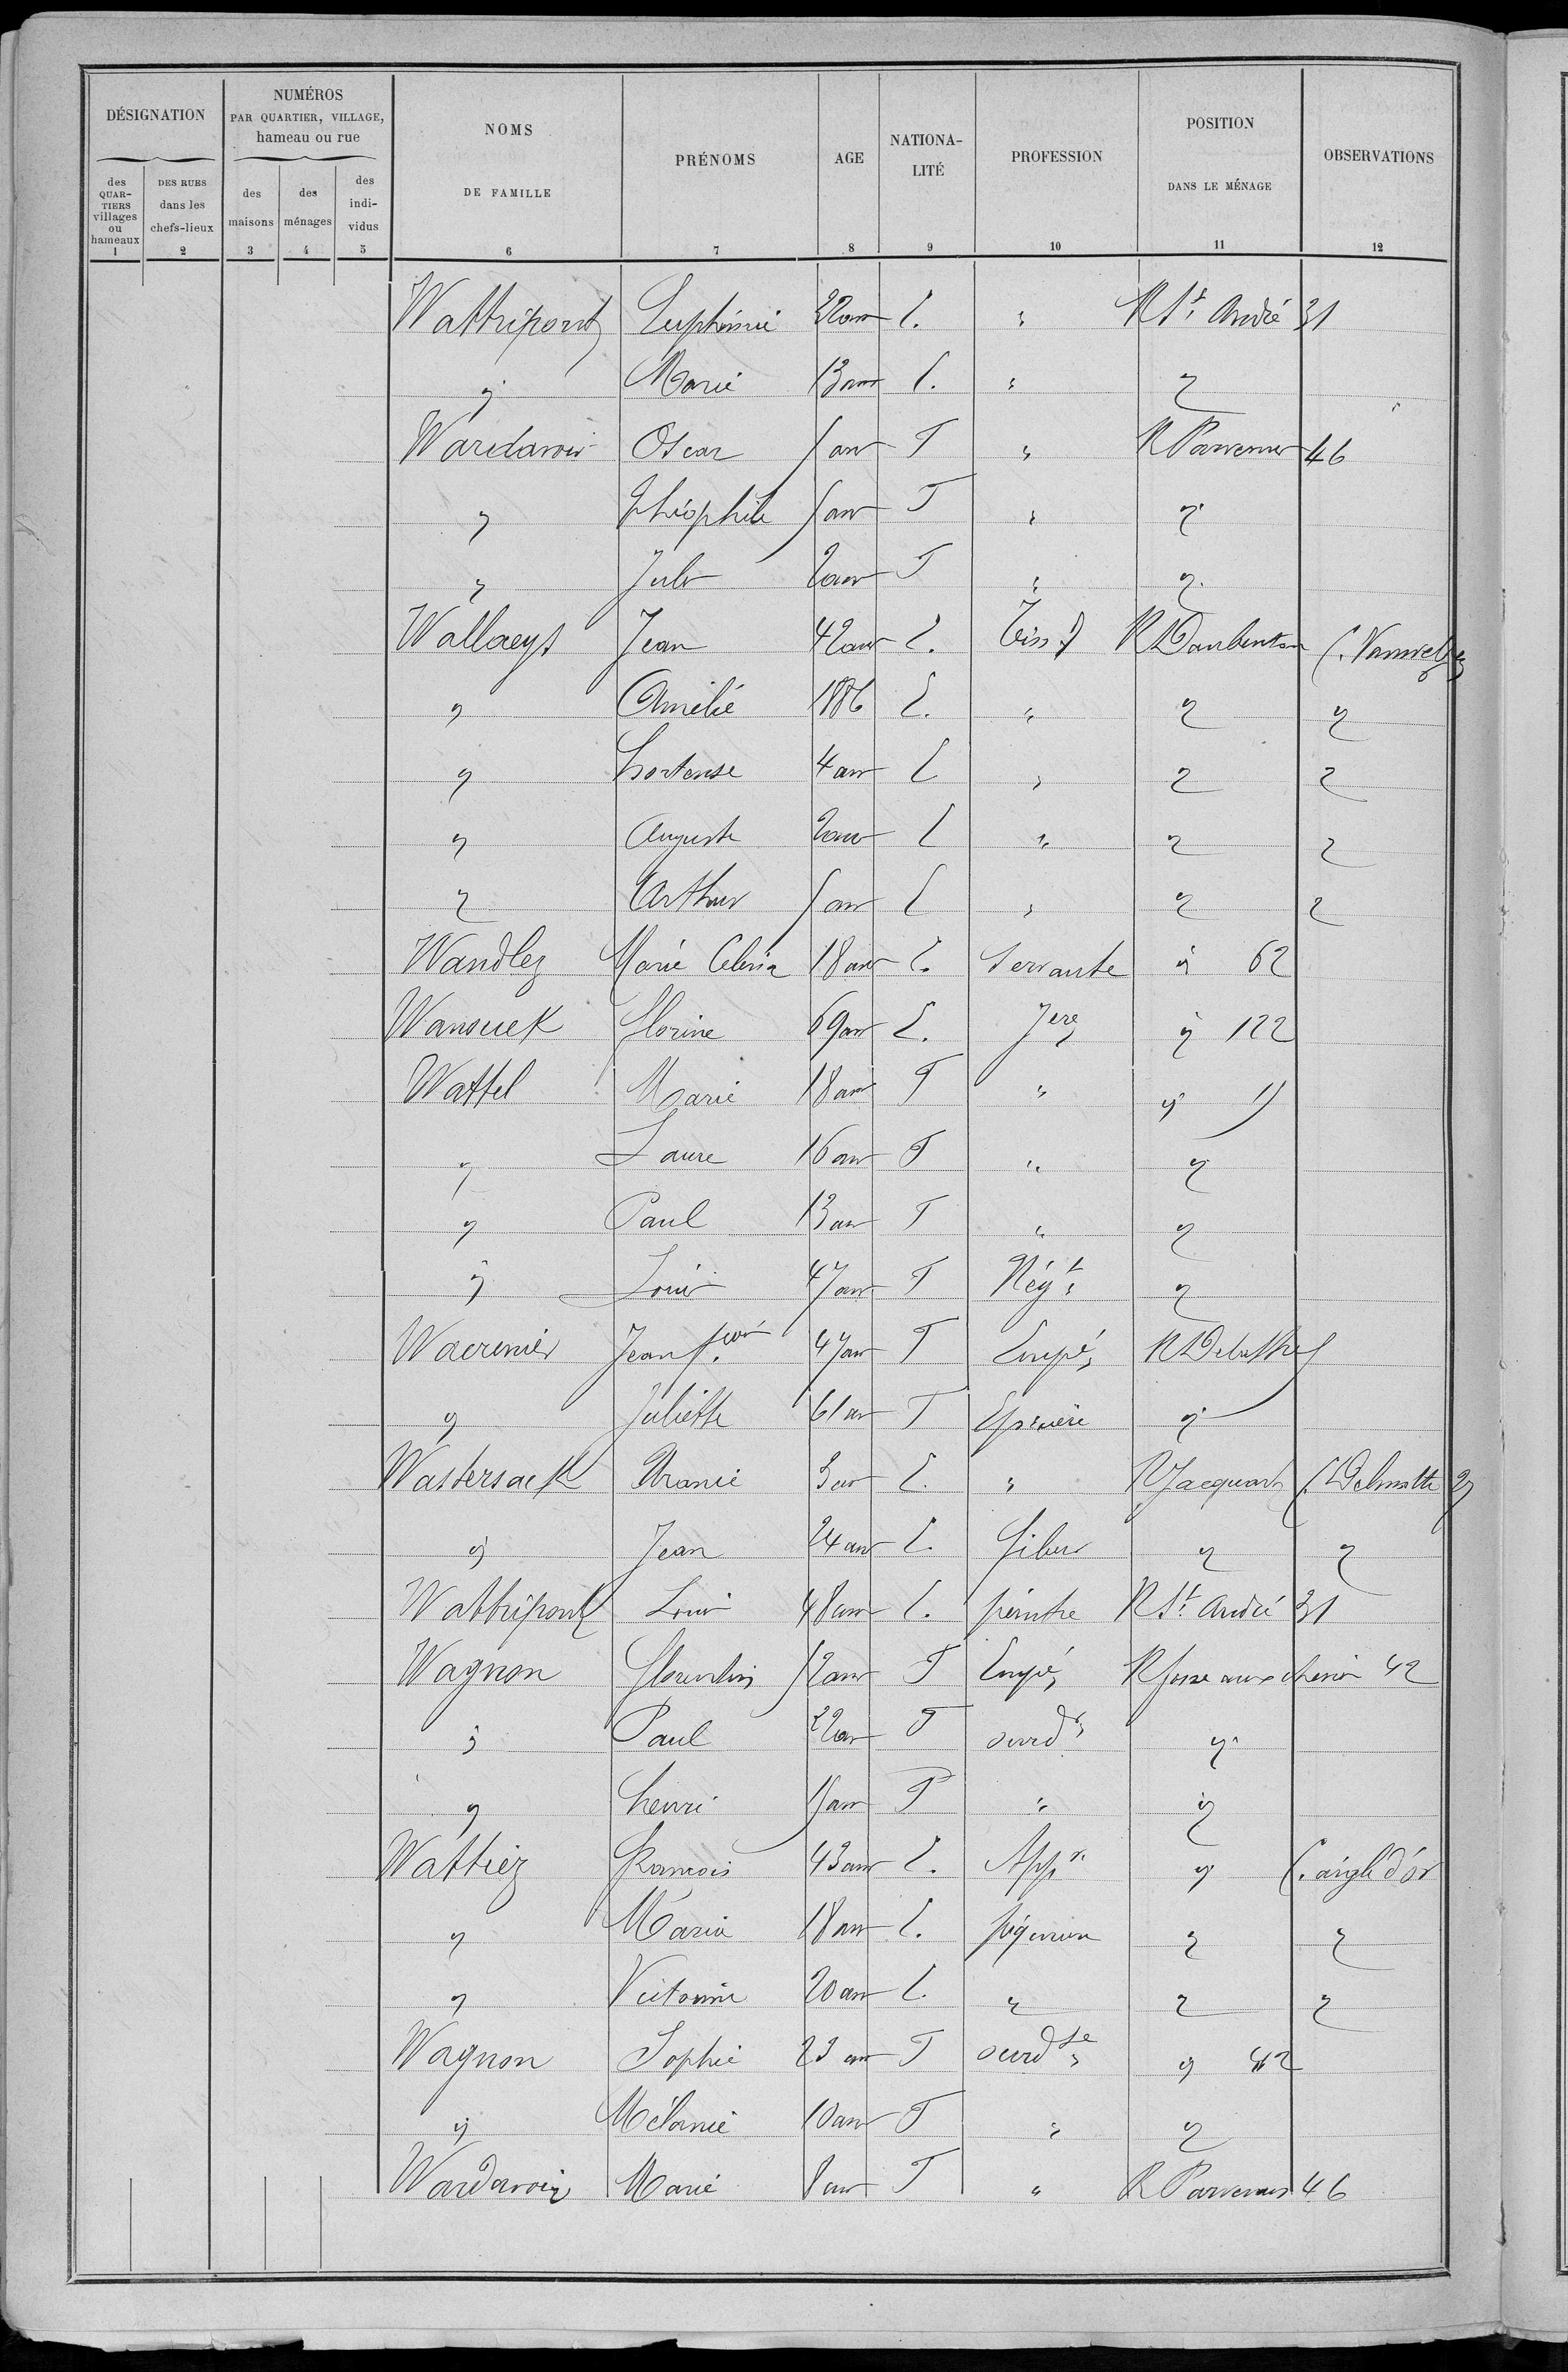 DÉSIGNATION
NUMÉROS PAR QUARTIER, VILLAGE, hameau ou rue
NOMS DE FAMILLE
PRÉNOMS
AGE
NATIONA-LITÉ
PROFESSION
POSITION DANS LE MÉNAGE
OBSERVATIONS
des QUAR-TIERS villages ou hameaux
DES RUES dans les chefs-lieux
des maisons
des ménages
des indi-vidus
1 2 3 4 5 6 7 8 9 10 11 12
Wattripont Euphémie 22 ans E. " R St. André 31
" Marie 13 ans E. " "
Wardavoir Oscar 5 ans F " R Parvenus 46
" Théophile 5 ans F " "
" Jules 2 ans F " "
Wallaeys Jean 42 ans E. Tissd R Daubenton
" Amélie 1886 E. " " "
" hortense 4 ans E " " "
" Auguste 2 ans E " " "
" Arthur 5 ans E " " "
Wandlez Marie Celina 18 ans E. Servante " 62
florine 69 ans E. Jère " 122
Wattel Marie 18 ans F "
" Laure 16 ans F " "
" Paul 13 ans F " "
" Louis 47 ans F Négt "
Wacrenier Jean fçois 47 ans F Empé R Delattre
" Juliette 61 ans F Epicière "
Uranie 3 ans E. " R Jacquart
" Jean 24 ans E. fileur " "
Wattripont Louis 48 ans E. peintre R St. André 31
Wagnon florentin 52 ans F Empé R fosse aux chênes 42
" Paul 22 ans F ourdr "
" henri 15 ans F " "
Wattiez francois 43 ans E. Appr " C. aigle d'or
" Maria 18 ans E. piqurière " "
" Victorine 20 ans E. " " "
Wagnon Sophie 23 ans F ourdse " 42
" Mélanie 10 ans F " "
Wardavoir Marie 8 ans F " R Parvenus 46